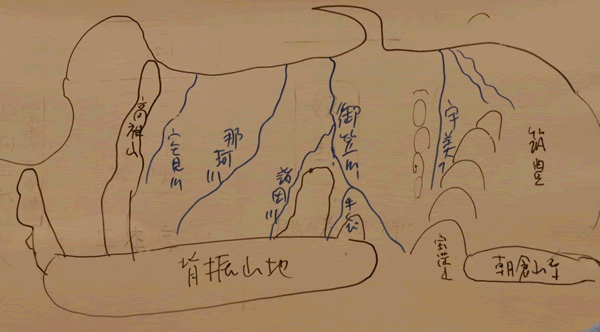 高祖山
室見川
那珂川
諸岡川
御笠川
宇美川
筑豊
宝満山
背振山地
朝倉山系